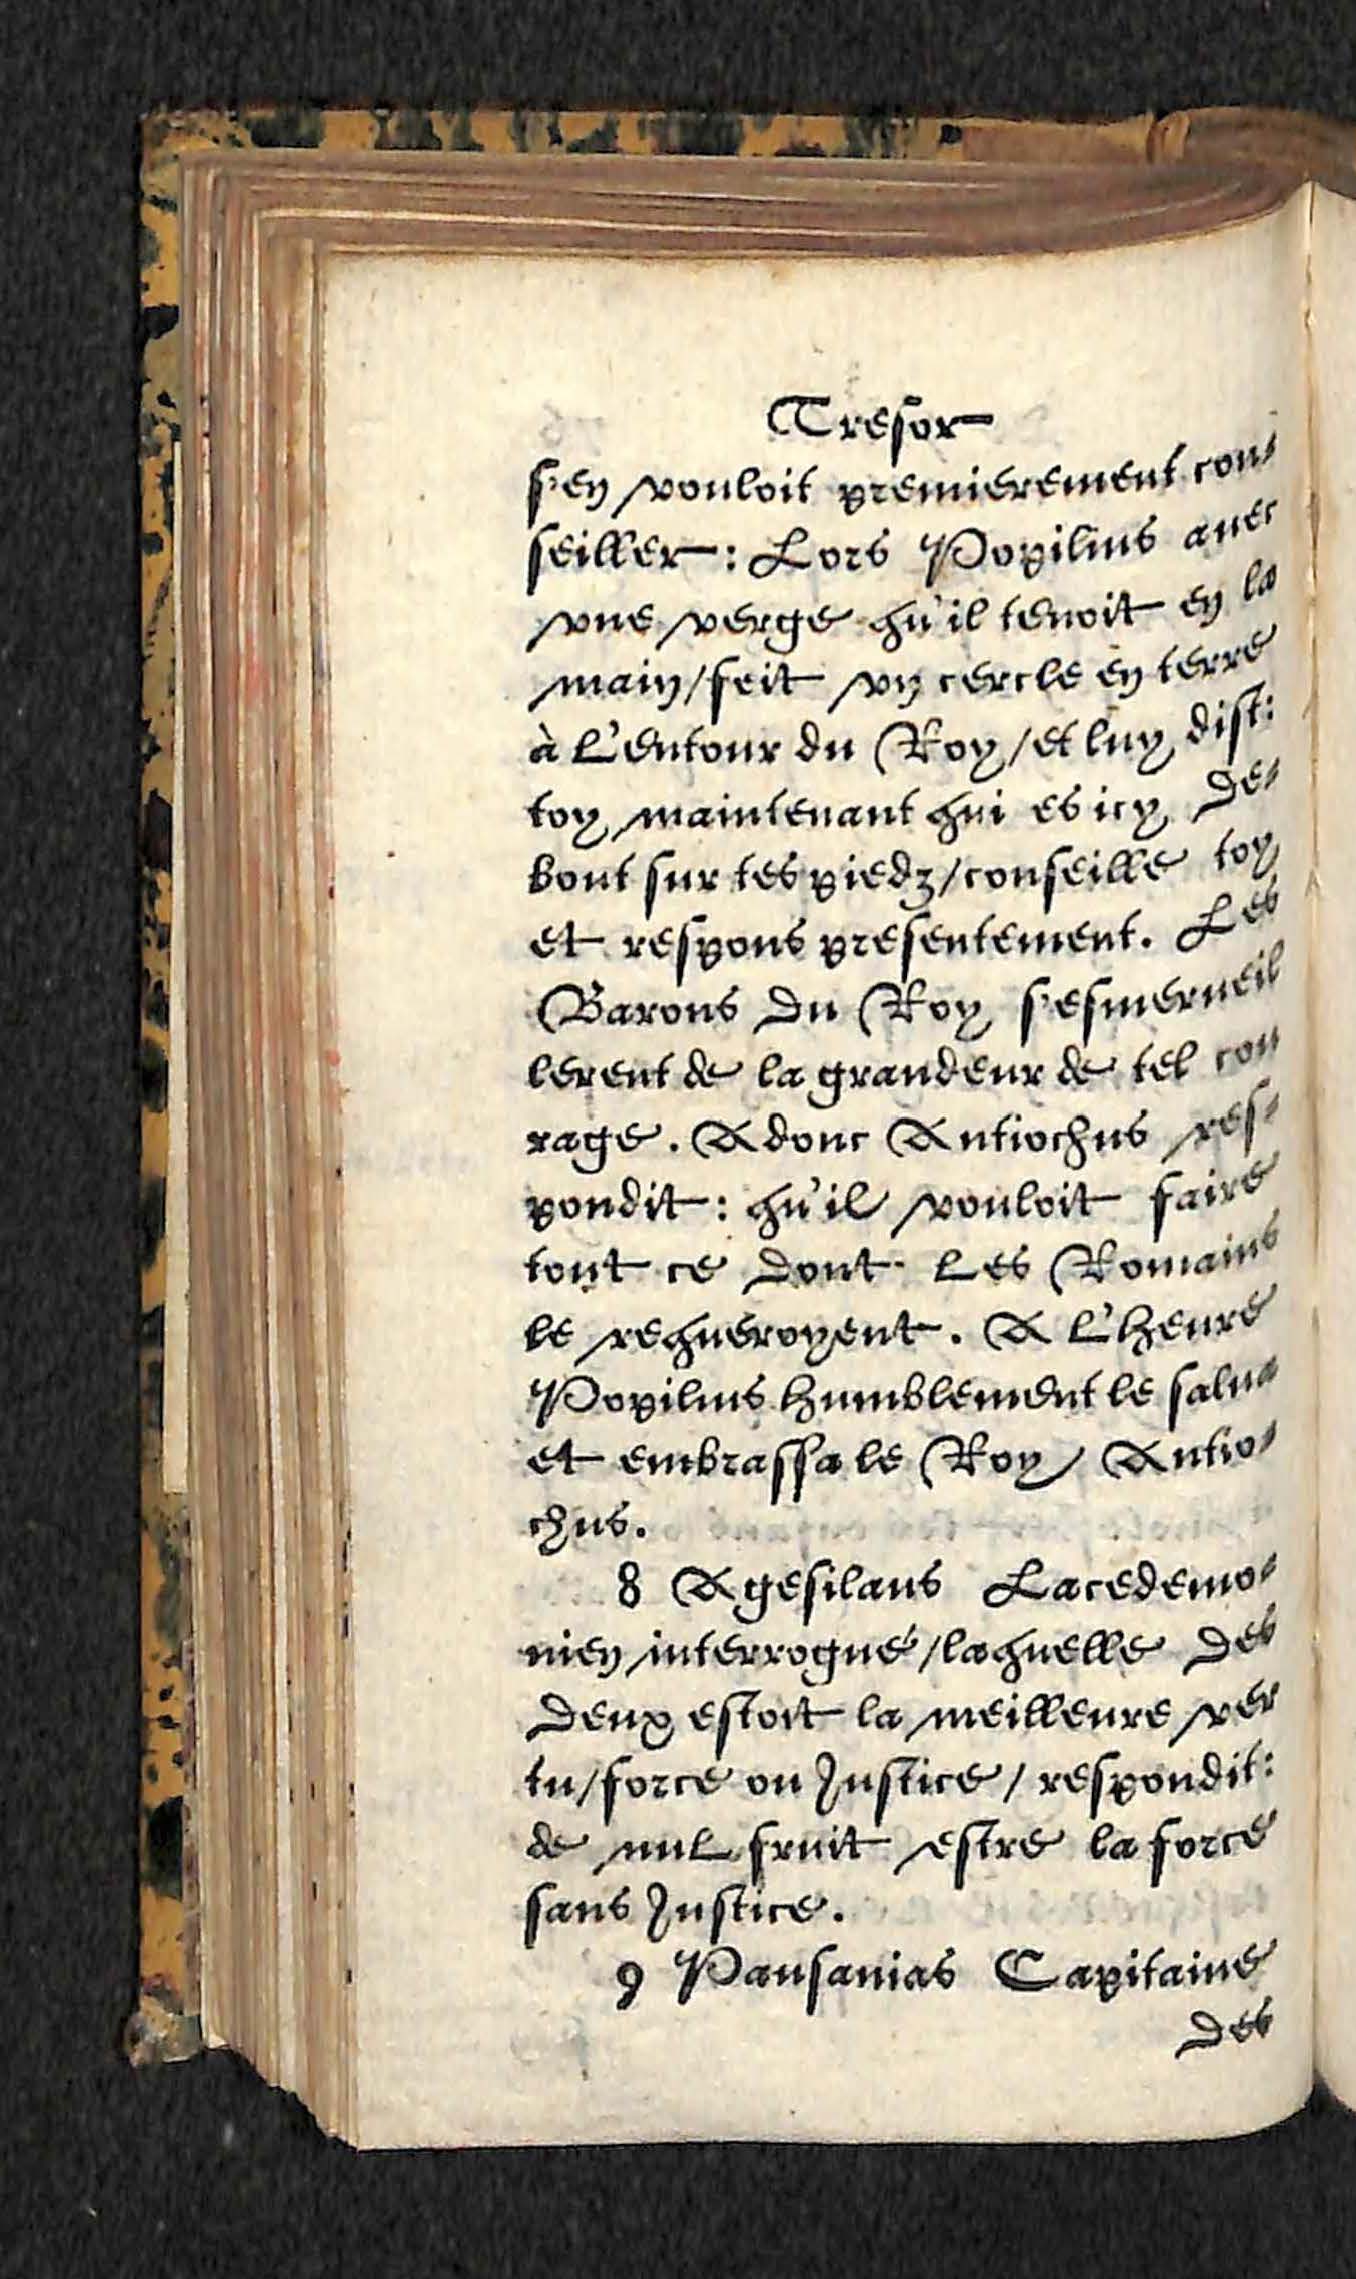 Tresor
s'en vouloit premierement con-
seiller: Lors Popilius auec
vne verge qu'il tenoit en la
main/feit vn cercle en terre
à L'entour du Roy/et luy dist:
toy maintenant qui es icy de-
bout sur tes piedz/conseille toy
et respons presentement. Les
Barons du Roy s'esmerueil
lerent de la grandeur de tel cou
rage. Adonc Antiochus res-
pondit: qu'il vouloit faire
tout ce dont Les Romains
le requeroyent. A L'heure
Popilius humblement le salua
et embrassa le Roy Antio-
chus.
8 Agesilaus Lacedemo-
nien interrogué/laquelle des
deux estoit la meilleure ver
tu/force ou Justice/respondit:
de nul fruit estre la force
sans Justice.
9 Pausanias Capitaine
des